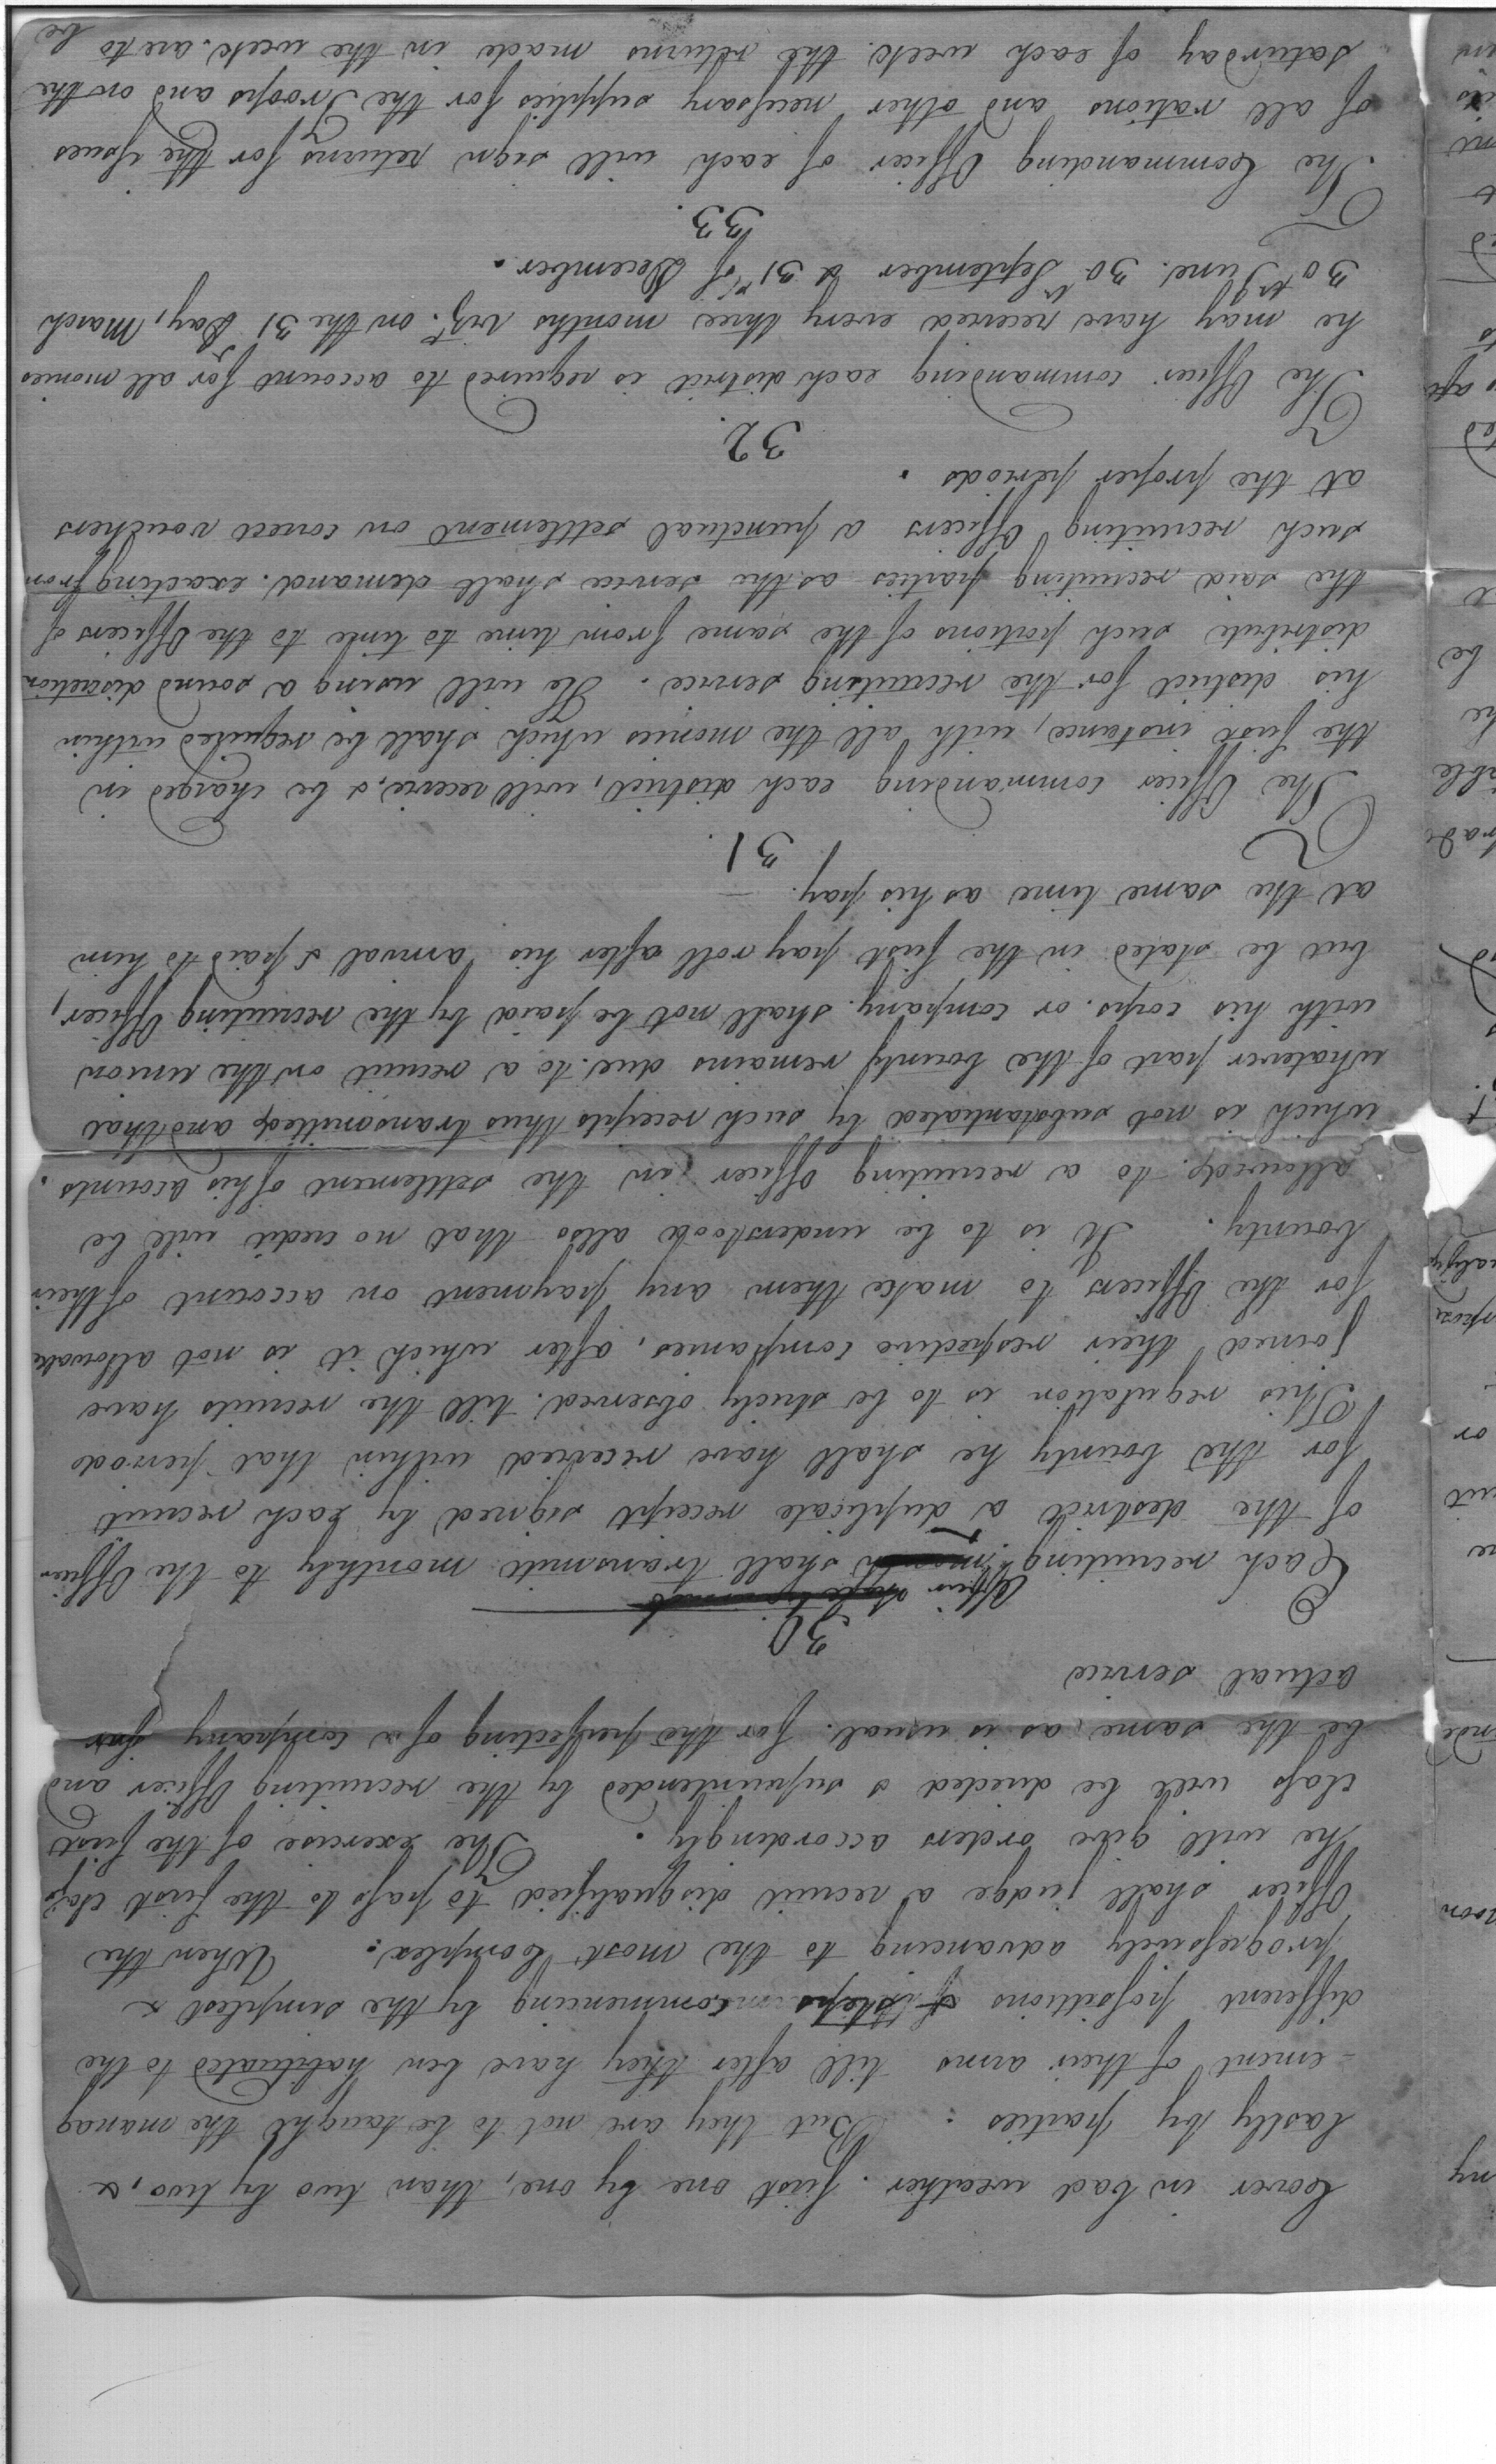 Cover in bad weather. first one by one, than two by two, &
lastly by parties : But they are not to be taught the manag
-ement of their arms till after they have ben habituated to the
different positions & steps commencing by the simplest &
progressively advancing to the most Complex: When the
Officer shall judge a recruit disqualified to pass to the first class
he will give orders accordingly. The exercise of the first
class will be directed & superintended by the recruiting Officer and
be the same as is usual for the perfecting of a company for
actual service
30.
Officer
Each recruiting shall transmit monthly to the Officer
of the destrict a duplicate receipt signed by each recruit
for the bounty he shall have received within that periode
This regulation is to be stricly observed till the recruits have
joined their respective companies, after, which it is not allowable
for the Officers to make them any payment on account of their
bounty. It is to be understoode allso that no credit will be
allowed to a recruiting Officer in the settlement of his accounts.
which is not substantiated by such receipts thus transmitted and that
whatever part of the bounty remains due to a recruit on the union
with his corps. or company. shall not be paid by the recruiting Officer,
but be stated in the first pay roll after his arrival & paid to him
at the same time as his pay. —
31.
The Officer commanding each district, will receive, & be charged in
the first instance, with all the monies which shall be required within
his district for the recruiting service. He will using a sound discretion
distribute such portions of the same from time to time to the Officers of
the said recruiting parties as the service shall demand. exacting from
such recruiting Officers a punctual settlement on correct vouchers
at the proper periods.
32.
The Officer commanding each district is required to account for all monies
he may have received every three months viz. on the 31 Day, March
30th June. 30th September & 31st of December.
33.
The Commanding Officer of each will sign returns for the issues
of all rations and other necessary supplies for the Troops and on the
saturday of each week. the returns made in the week. are to be